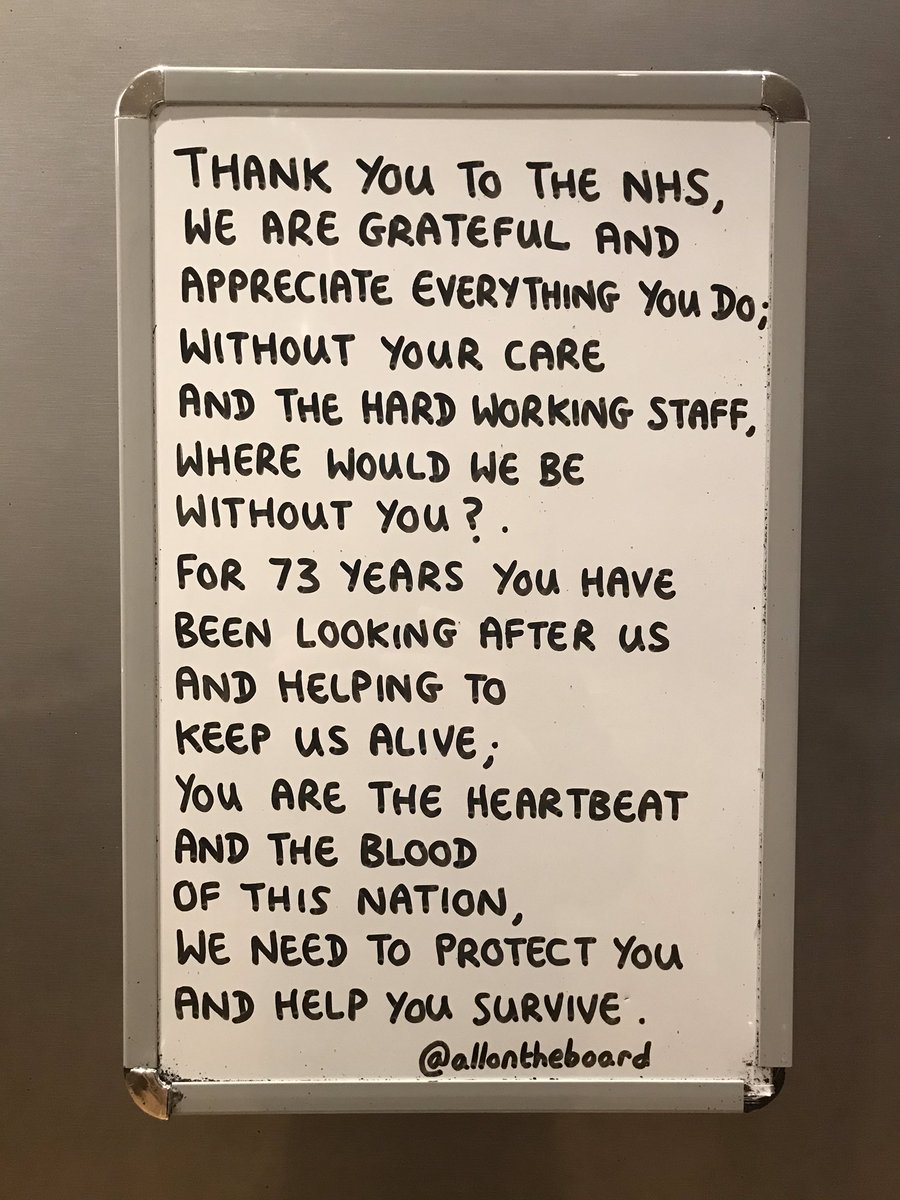 THANK YOU TO THE NHS,
WE ARE GRATEFUL AND
APPRECIATE EVERYTHING YOU DO;
WITHOUT YOUR CARE
AND THE HARD WORKING STAFF,
WHERE WOULD WE BE
WITHOUT YOU?.
FOR 73 YEARS YOU HAVE
BEEN LOOKING AFTER US
AND HELPING TO
KEEP US ALIVE;
YOU ARE THE HEARTBEAT
AND THE BLOOD
OF THIS NATION,
WE NEED TO PROTECT YOU
AND HELP YOU SURVIVE.
@allontheboard